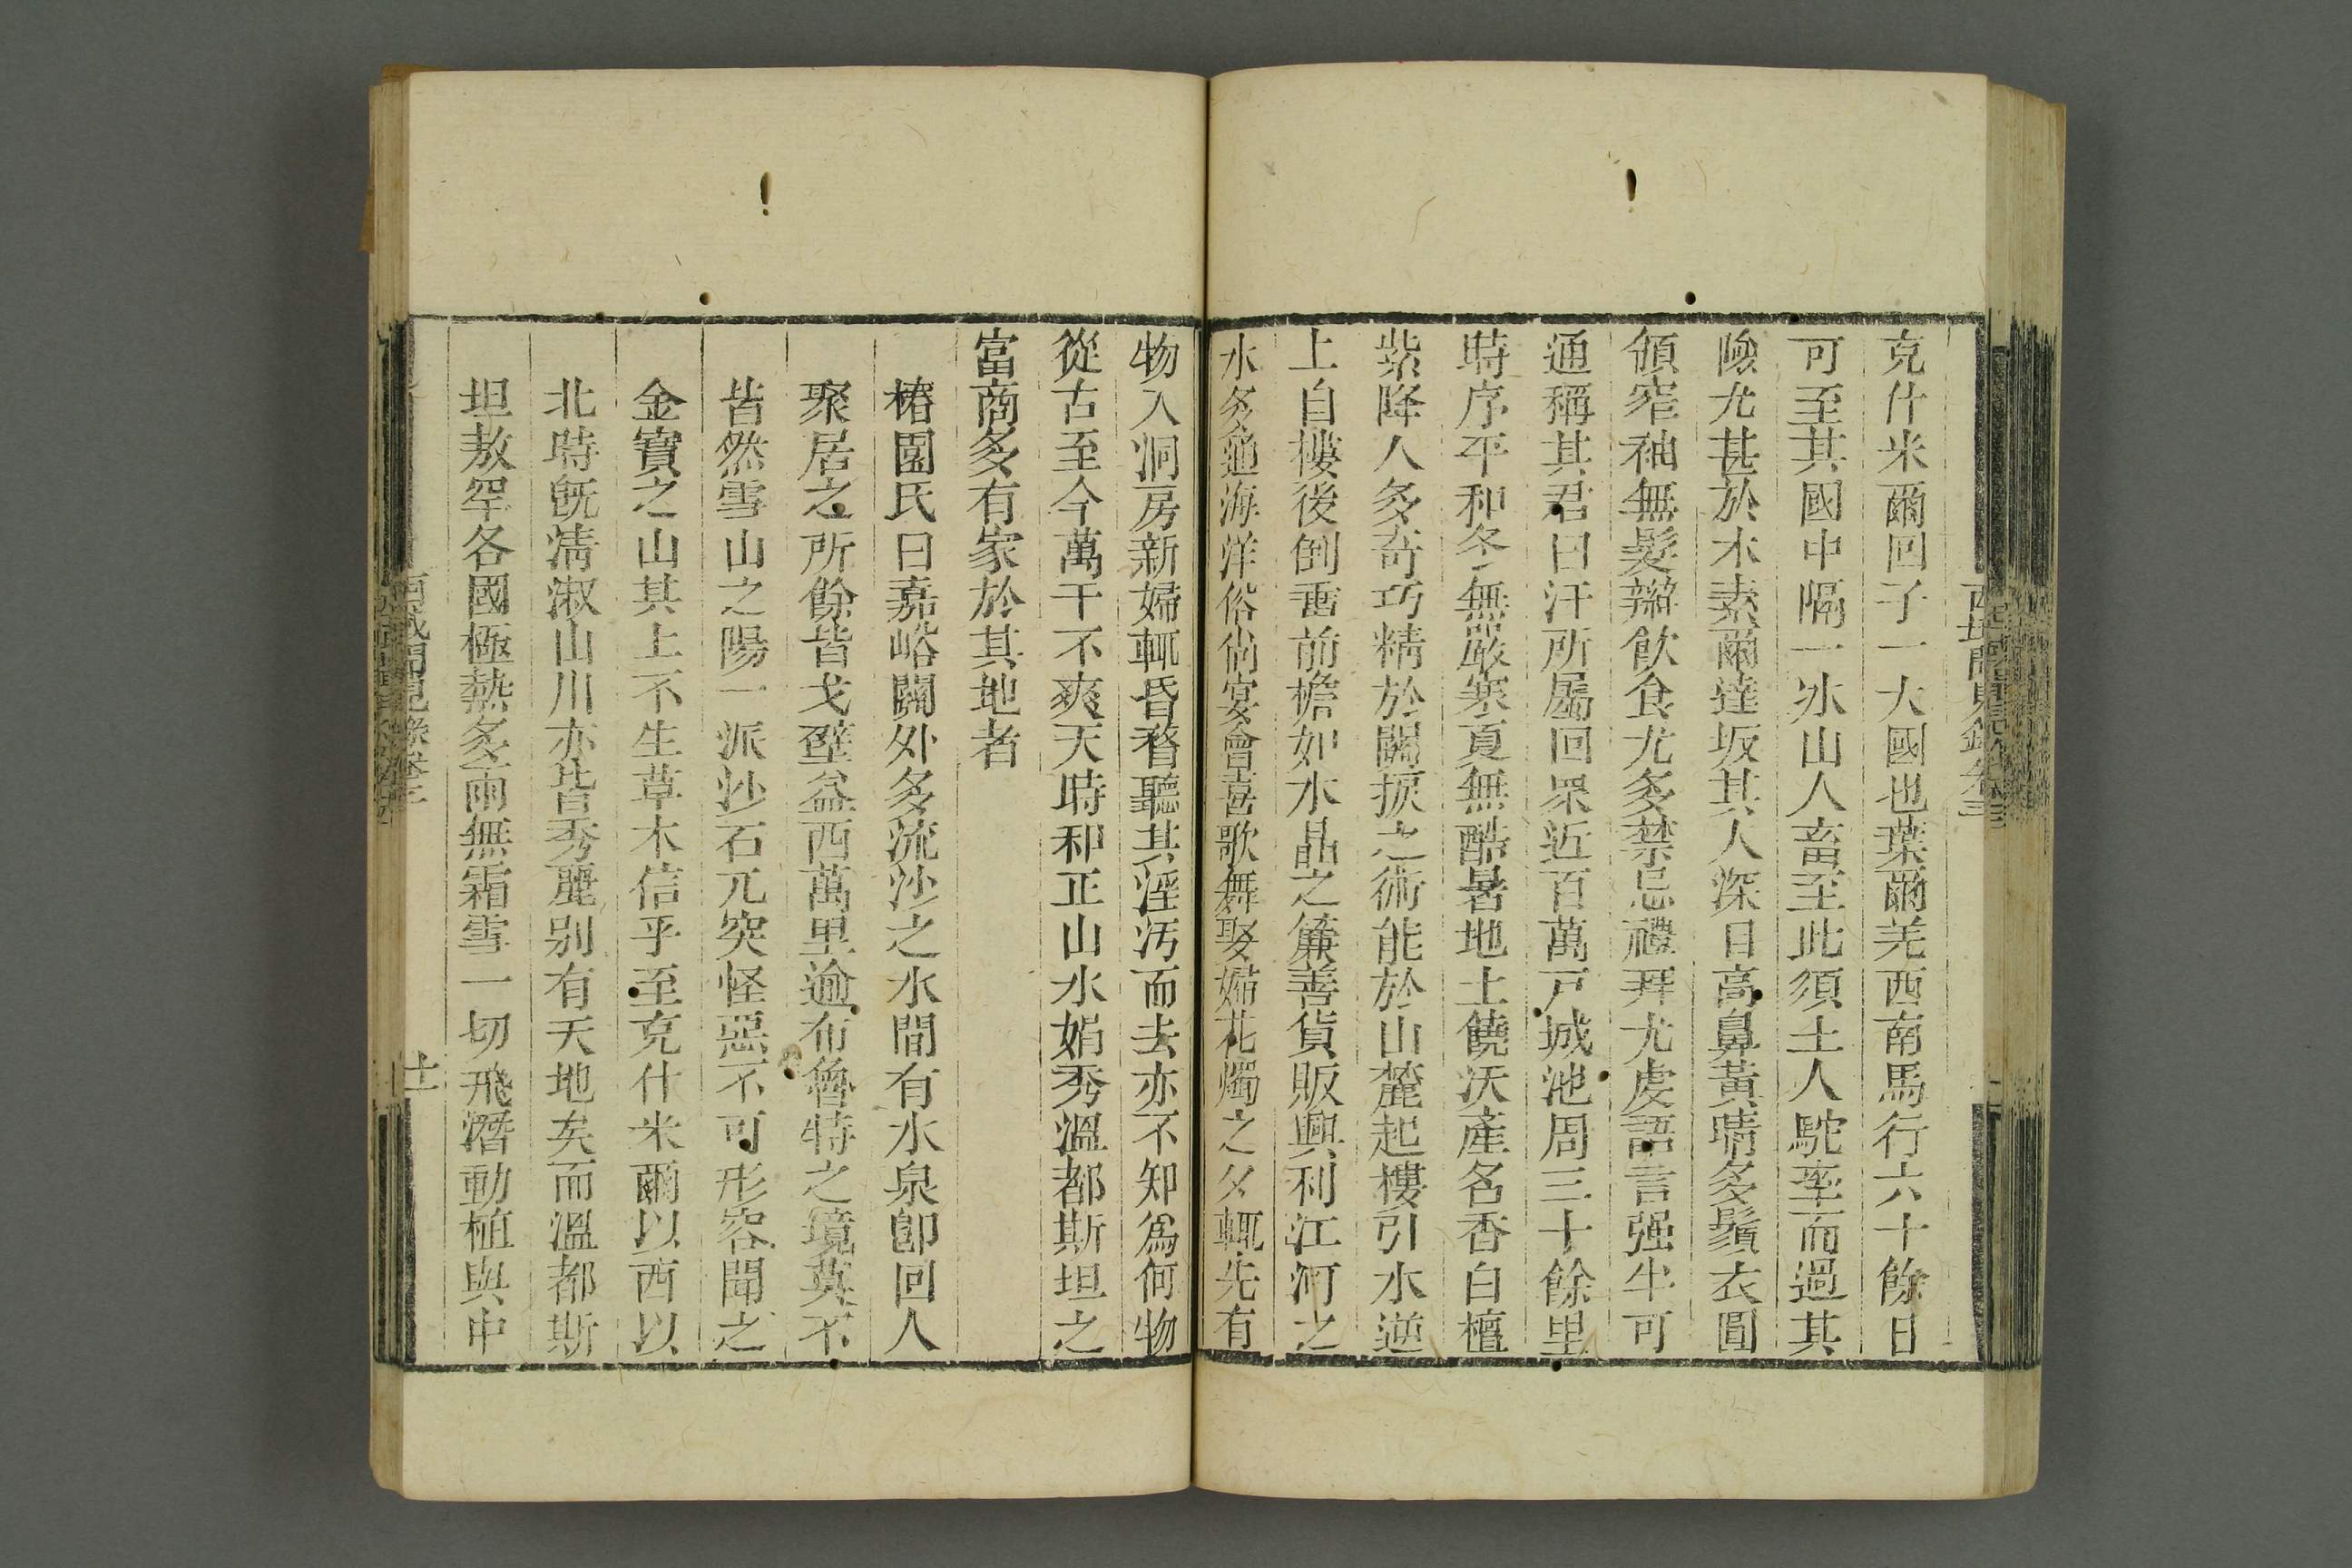 克什米爾回子一大國也葉爾羌西南馬行六十餘日
可至其國中隔一冰山人畜至此須土人駝牽而過其
險尤甚於木素爾達坂其人深目高鼻黃睛多鬚衣圓
領窄袖無髮辮飲食尤多禁忌禮拜尤虔語言强半可
通稱其君曰汗所屬回眾近百萬戸城池周三十餘里
時序平和冬無嚴寒夏無酷暑地土饒沃產名香白檀
紫降人多奇巧精於關捩之術能於山麓起樓引水逆
上自樓後倒畨前檐如水晶之簾善貨販興利江河之
水多通海洋俗尙宴會喜歌舞娶婦花燭之夕輒先有
物入洞房新婦輒昏瞀聽其淫汚而去亦不知爲何物
從古至今萬千不爽天時和正山水娟秀溫都斯坦之
富商多有家於其地者
椿園氏曰嘉峪關外多流沙之水間有水泉卽回人
聚居之所餘皆戈壁益西萬里逾布魯特之境莫不
皆然雪山之陽一派沙石兀突怪惡不可形容聞之
金寶之山其上不生草木信乎至克什米爾以西以
北時旣淸淑山川亦皆秀麗別有天地矣而溫都斯
坦敖罕各國極熱多雨無霜雪一切飛潛動植與中
西域聞見錄卷三